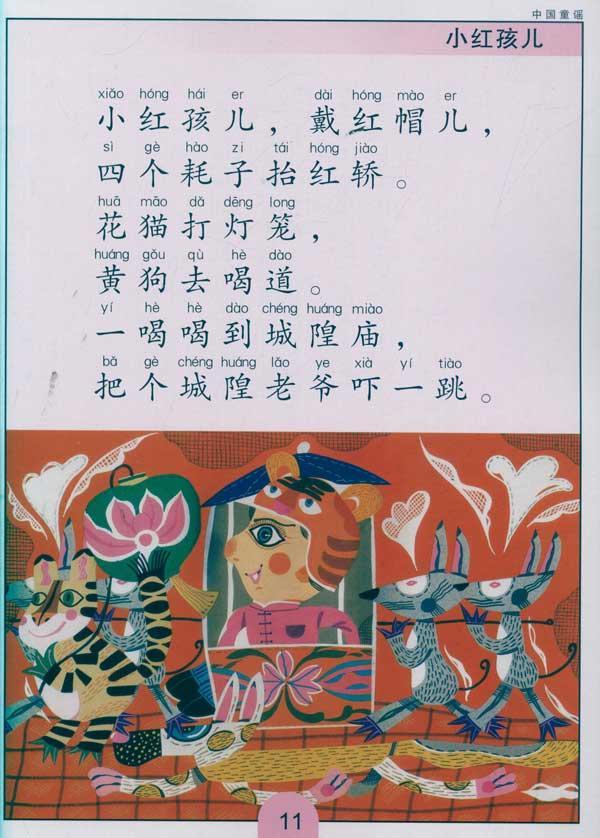 中国童谣
小红孩儿
xiǎo hóng hái er dài hóng mào er
小红孩儿，戴红帽儿，
sì gè hào zi tái hóng jiào
四个耗子抬红轿。
huā māo dǎ dēng long
花猫打灯笼，
huáng gǒu qù hè dào
黄狗去喝道。
yí hè hè dào chéng huáng miào
一喝喝到城隍庙，
bǎ gè chéng huáng lǎo ye xià yí tiào
把个城隍老爷吓一跳。
11